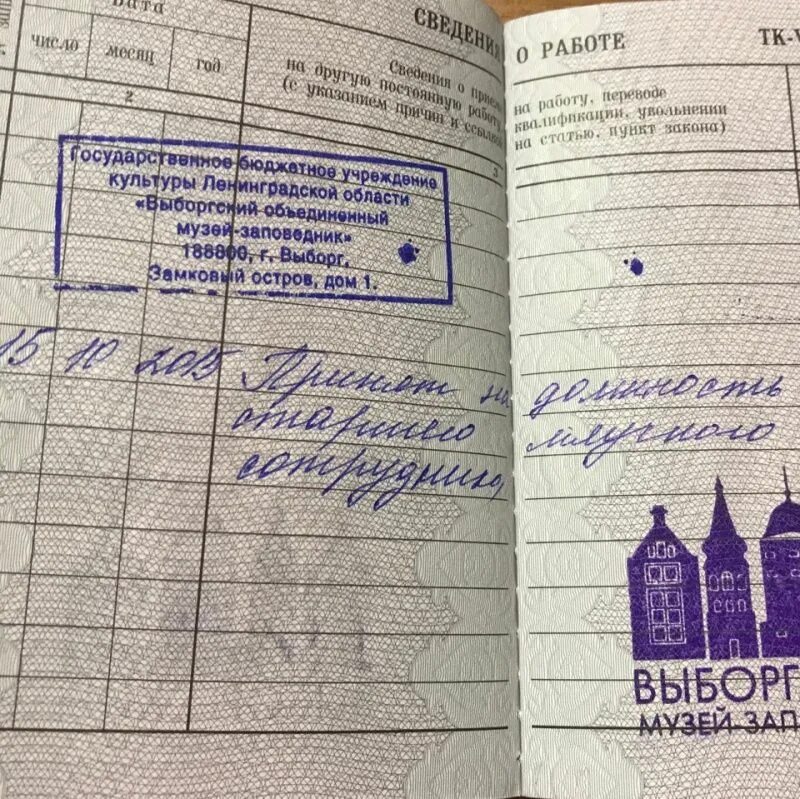 СВЕДЕНИЯ О РАБОТЕ ТК-V
Дата
число месяц год
Сведения о прие на работу, переводе
на другую постоянную работу квалификации, увольнении
(с указанием причин и ссылкой на статью, пункт закона)
2 3
Государственное бюджетное учреждение
культуры Ленинградской области
«Выборгский объединенный
музей-заповедник»
188800, г. Выборг,
Замковый остров, дом 1.
15 10 2015 Принят на должность
старшего научного
сотрудника
ВЫБОРГ
МУЗЕЙ ЗАП